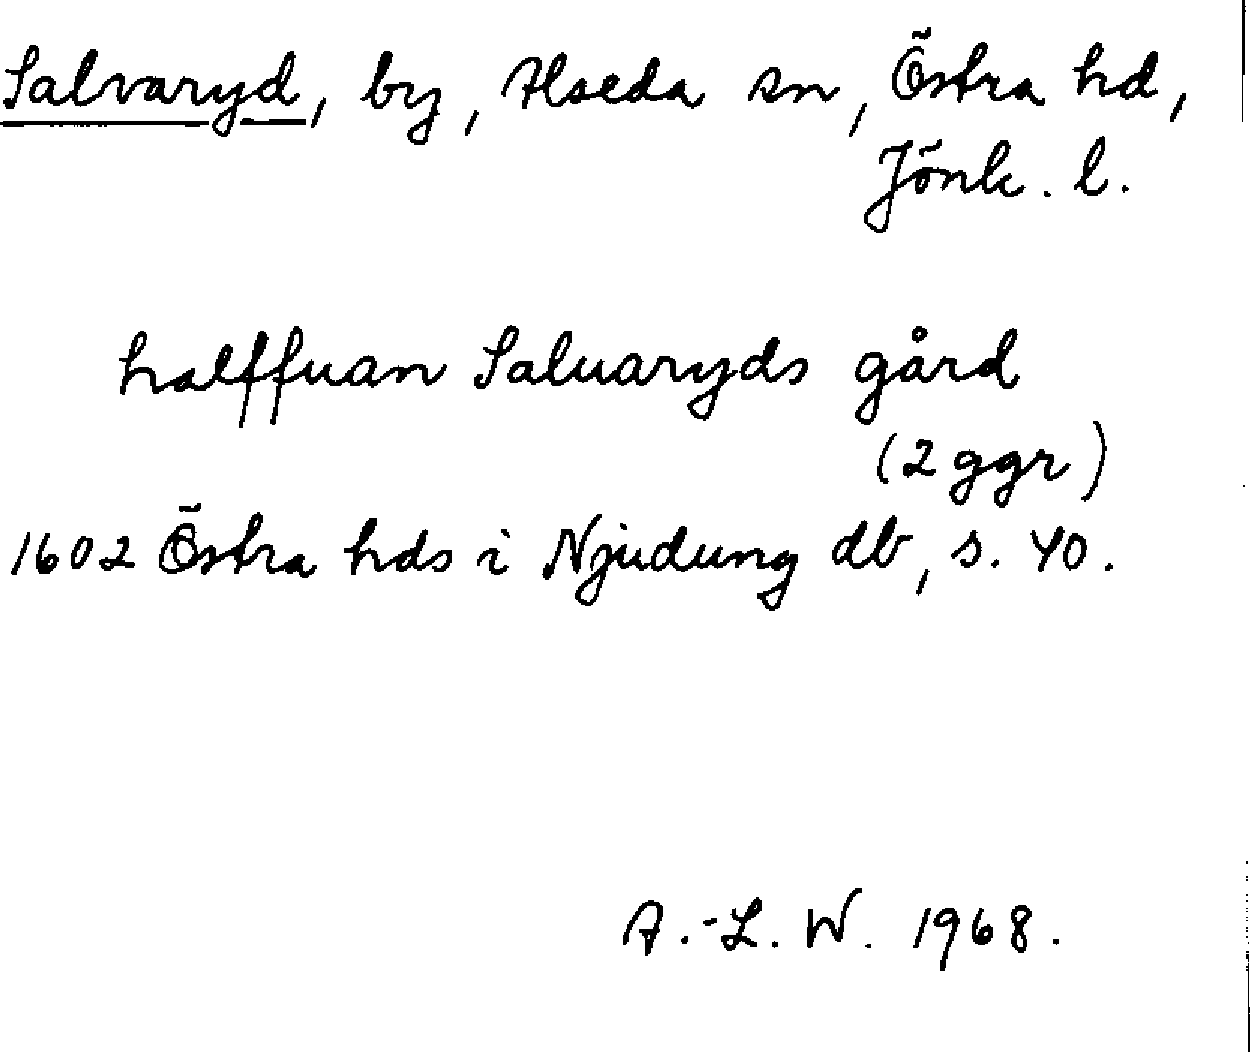 Salvaryd, by, Alseda sn, Östra hd,
Jönk. l.
halffuan Saluaryds gård
(2 ggr)
1602 Östra hds i Njudung db, s. 40.
A.-L. W. 1968.